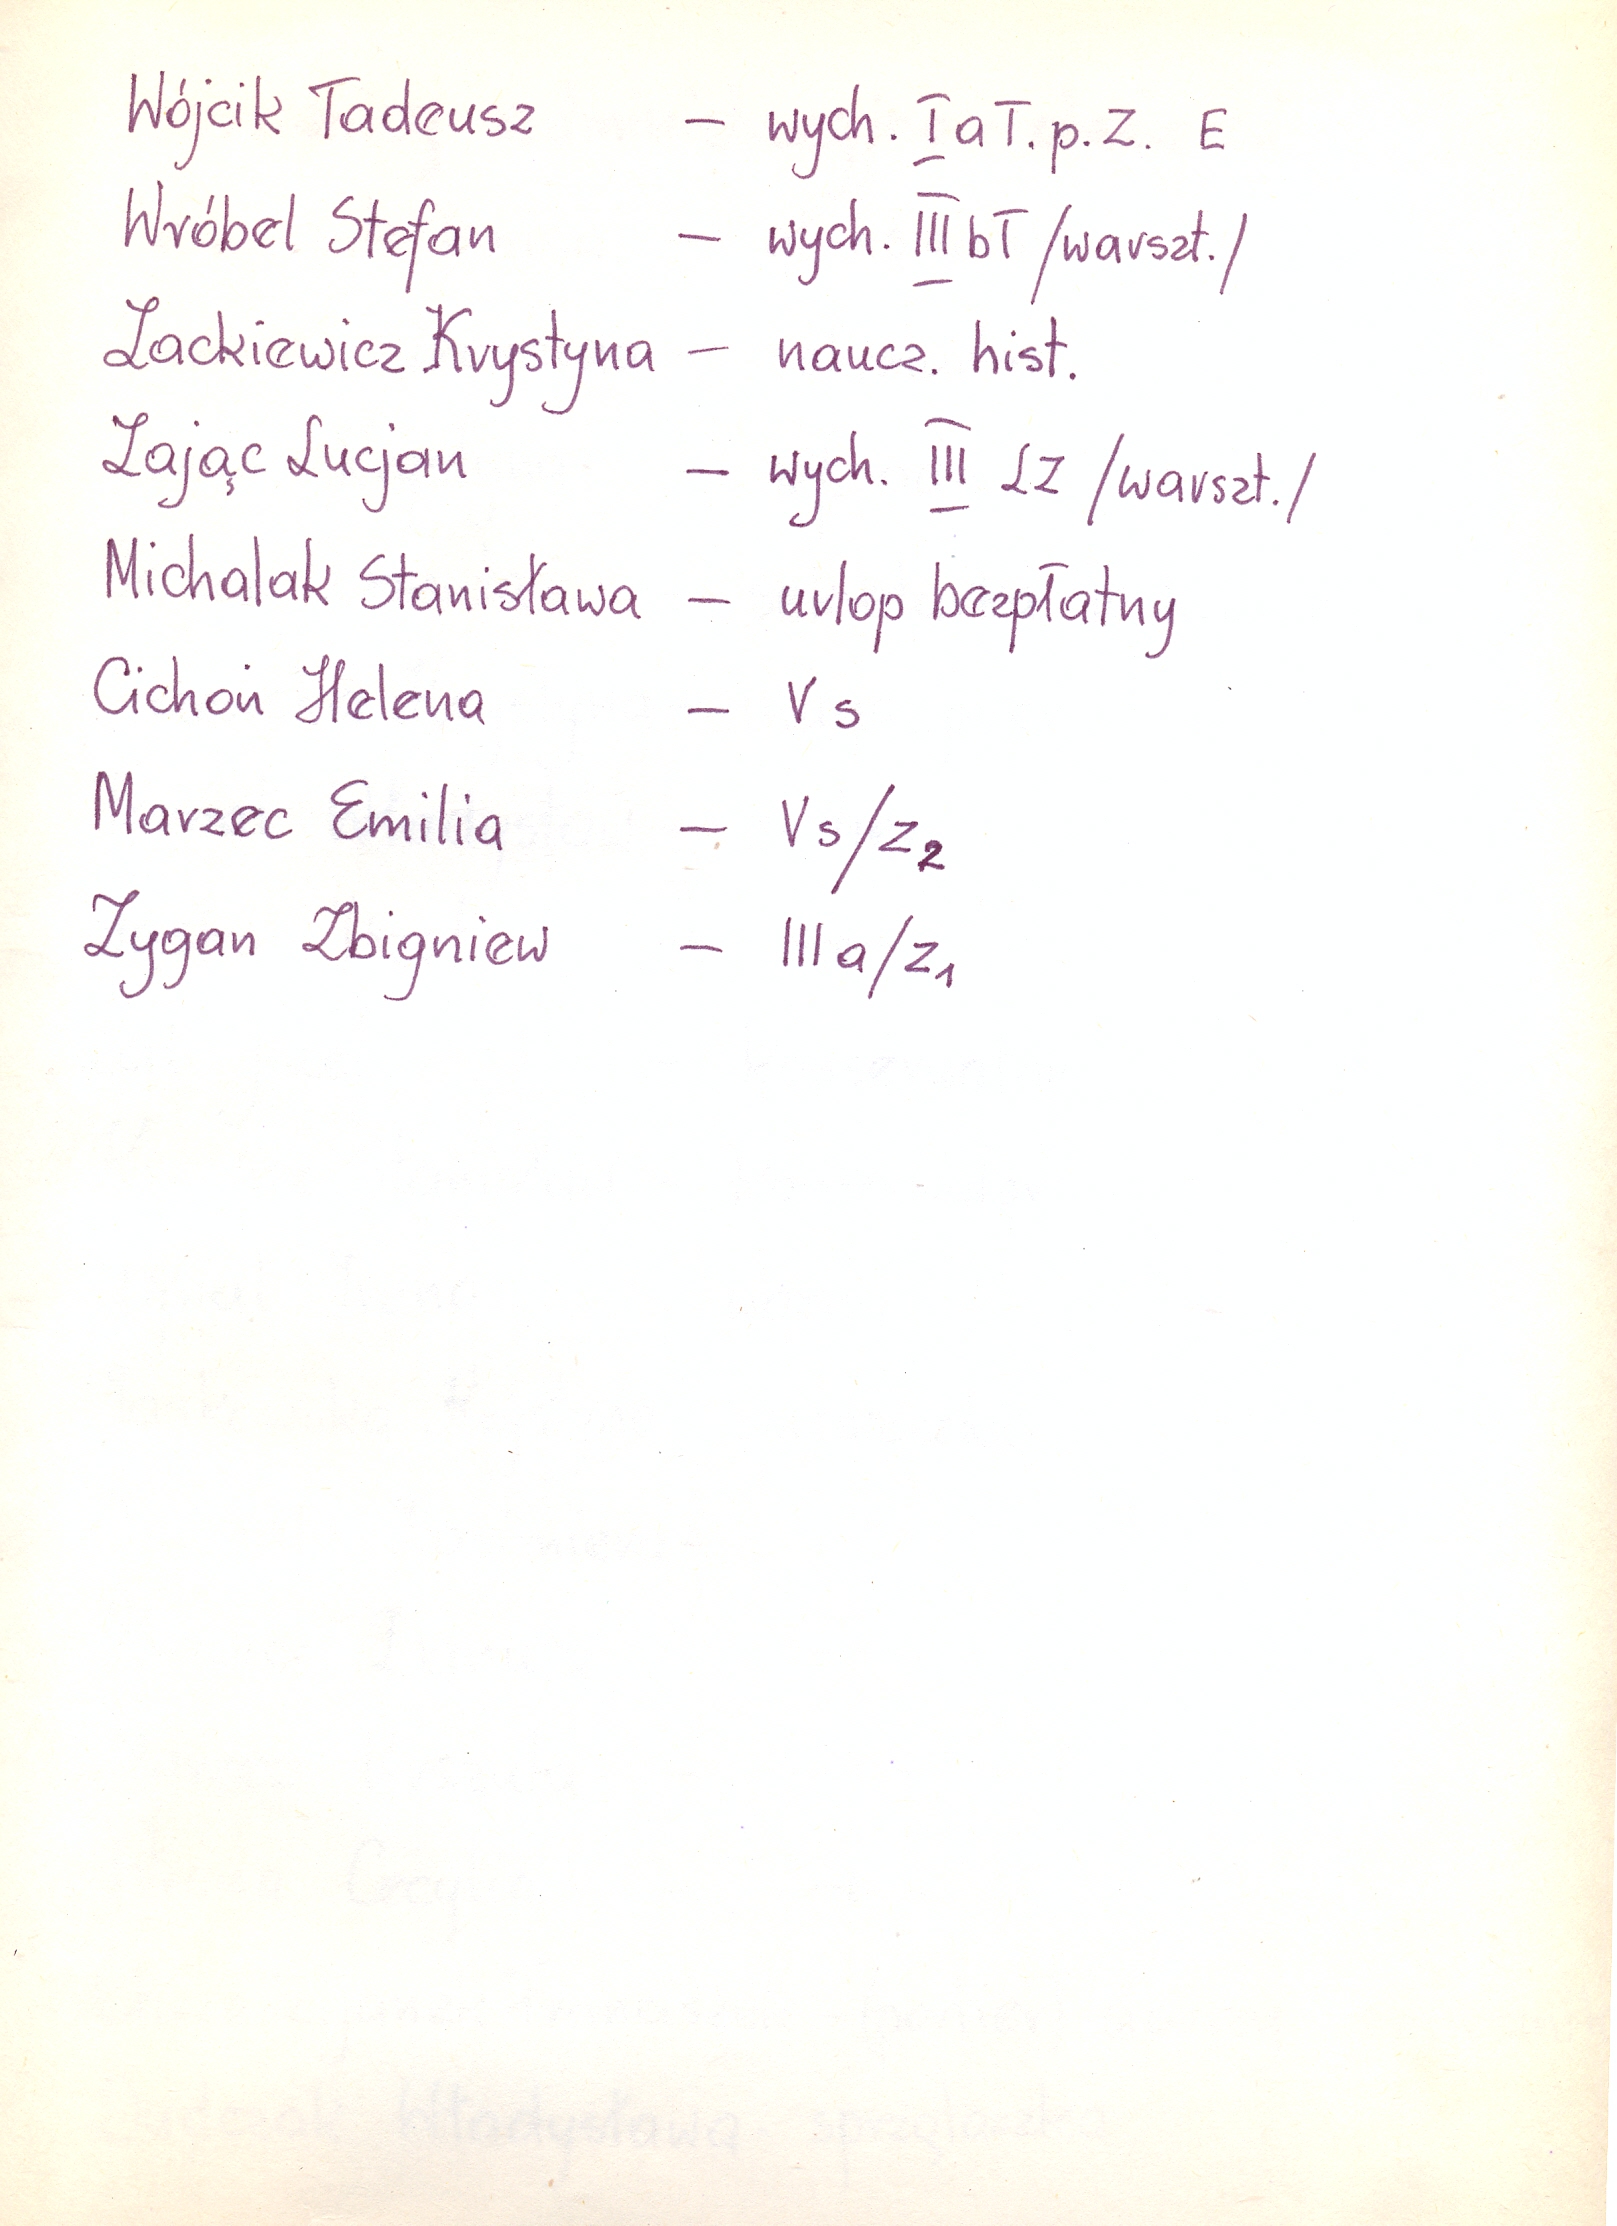 Wójcik Tadeusz – wych. I a T. p. Z. E
Wróbel Stefan – wych. III bT /warszt./
Zackiewicz Krystyna – naucz. hist.
Zając Lucjan – wych. III LZ /warszt./
Michalak Stanisława – urlop bezpłatny
Cichoń Helena – V s
Marzec Emilia – V s/z₂
Zygan Zbigniew – III a/z₁